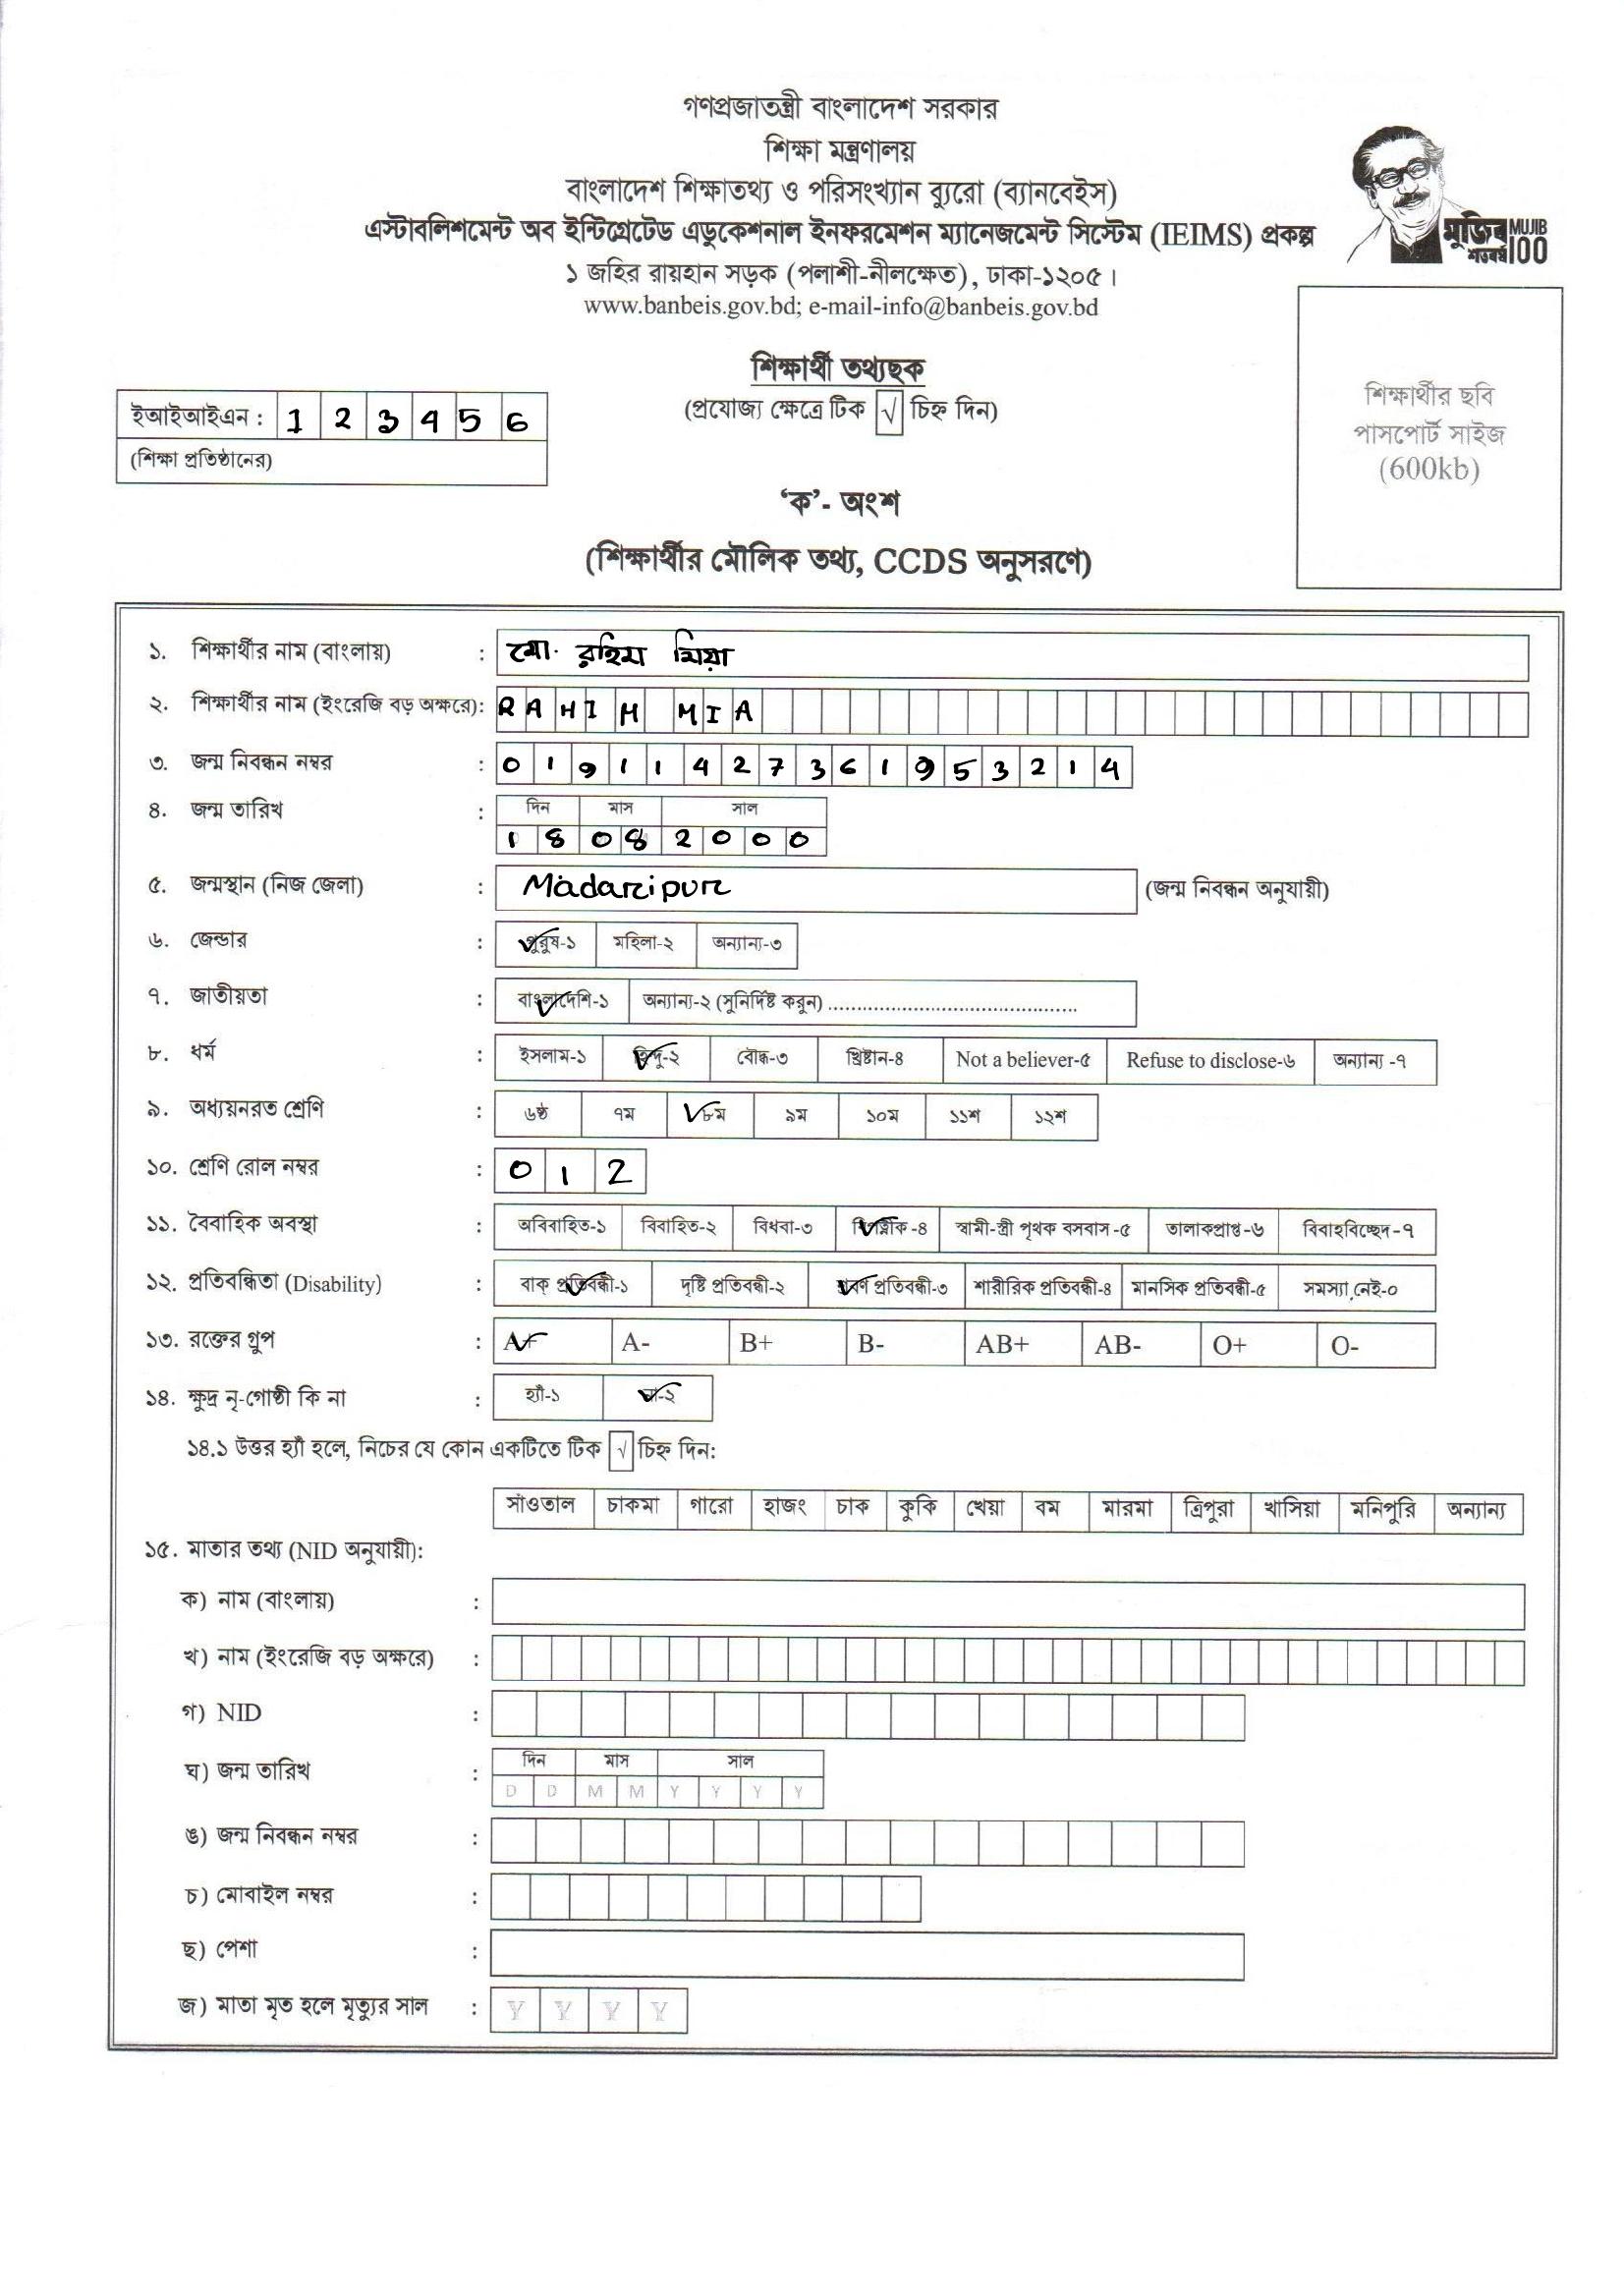 গণপ্রজাতন্ত্রী বাংলাদেশ সরকার
শিক্ষা মন্ত্রণালয়
বাংলাদেশ শিক্ষাতথ্য ও পরিসংখ্যান ব্যুরো (ব্যানবেইস)
এস্টাবলিশমেন্ট অব ইন্টিগ্রেটেড এডুকেশনাল ইনফরমেশন ম্যানেজমেন্ট সিস্টেম (IEIMS) প্রকল্প
১ জহির রায়হান সড়ক (পলাশী-নীলক্ষেত), ঢাকা-১২০৫।
www.banbeis.gov.bd; e-mail-info@banbeis.gov.bd
মুজিব শতবর্ষ MUJIB 100
শিক্ষার্থী তথ্যছক
(প্রযোজ্য ক্ষেত্রে টিক √ চিহ্ন দিন)
ইআইআইএন : 1 2 3 4 5 6
(শিক্ষা প্রতিষ্ঠানের)
শিক্ষার্থীর ছবি
পাসপোর্ট সাইজ
(600kb)
‘ক’- অংশ
(শিক্ষার্থীর মৌলিক তথ্য, CCDS অনুসরণে)
১. শিক্ষার্থীর নাম (বাংলায়) : মো. রহিম মিয়া
২. শিক্ষার্থীর নাম (ইংরেজি বড় অক্ষরে): RAHIM MIA
৩. জন্ম নিবন্ধন নম্বর : 0 1 9 1 1 4 2 7 3 6 1 9 5 3 2 1 4
৪. জন্ম তারিখ : দিন মাস সাল
1 8 0 8 2 0 0 0
৫. জন্মস্থান (নিজ জেলা) : Madaripur (জন্ম নিবন্ধন অনুযায়ী)
৬. জেন্ডার : পুরুষ-১ মহিলা-২ অন্যান্য-৩
৭. জাতীয়তা : বাংলাদেশি-১ অন্যান্য-২ (সুনির্দিষ্ট করুন) ..........................................
৮. ধর্ম : ইসলাম-১ হিন্দু-২ বৌদ্ধ-৩ খ্রিষ্টান-৪ Not a believer-৫ Refuse to disclose-৬ অন্যান্য -৭
৯. অধ্যয়নরত শ্রেণি : ৬ষ্ঠ ৭ম ৮ম ৯ম ১০ম ১১শ ১২শ
১০. শ্রেণি রোল নম্বর : 0 1 2
১১. বৈবাহিক অবস্থা : অবিবাহিত-১ বিবাহিত-২ বিধবা-৩ বিপত্নীক -৪ স্বামী-স্ত্রী পৃথক বসবাস -৫ তালাকপ্রাপ্ত-৬ বিবাহবিচ্ছেদ -৭
১২. প্রতিবন্ধিতা (Disability) : বাক্ প্রতিবন্ধী-১ দৃষ্টি প্রতিবন্ধী-২ শ্রবণ প্রতিবন্ধী-৩ শারীরিক প্রতিবন্ধী-৪ মানসিক প্রতিবন্ধী-৫ সমস্যা নেই-০
১৩. রক্তের গ্রুপ : A+ A- B+ B- AB+ AB- O+ O-
১৪. ক্ষুদ্র নৃ-গোষ্ঠী কি না : হ্যাঁ-১ না-২
১৪.১ উত্তর হ্যাঁ হলে, নিচের যে কোন একটিতে টিক √ চিহ্ন দিন:
সাঁওতাল চাকমা গারো হাজং চাক কুকি খেয়া বম মারমা ত্রিপুরা খাসিয়া মনিপুরি অন্যান্য
১৫. মাতার তথ্য (NID অনুযায়ী):
ক) নাম (বাংলায়) :
খ) নাম (ইংরেজি বড় অক্ষরে) :
গ) NID :
ঘ) জন্ম তারিখ : দিন মাস সাল
D D M M Y Y Y Y
ঙ) জন্ম নিবন্ধন নম্বর :
চ) মোবাইল নম্বর :
ছ) পেশা :
জ) মাতা মৃত হলে মৃত্যুর সাল : Y Y Y Y